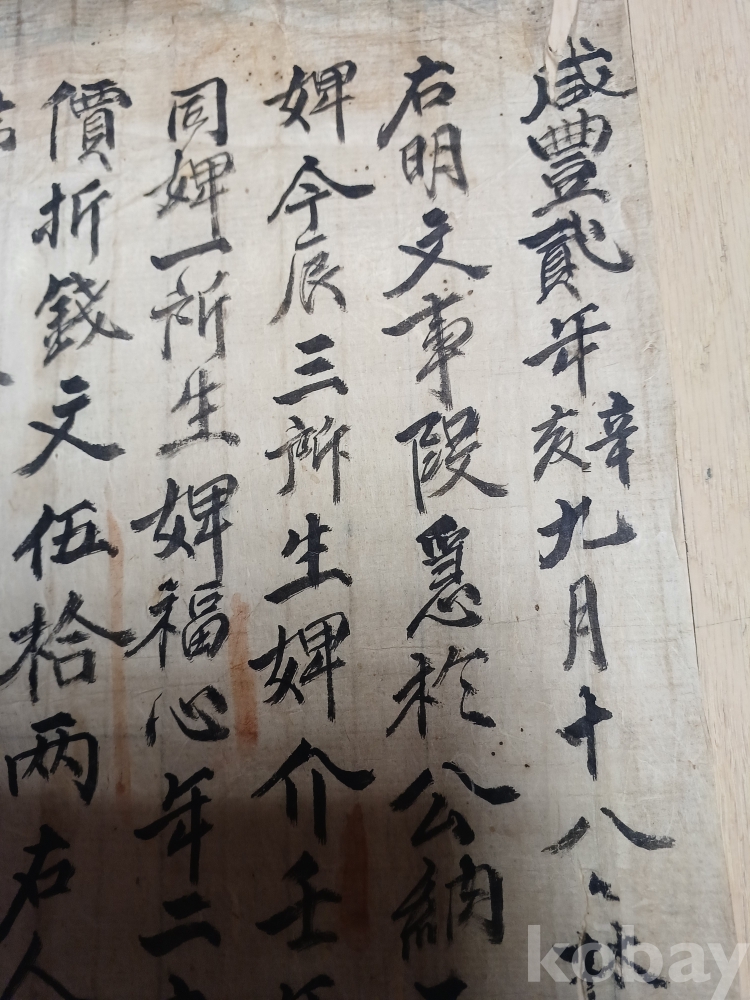 咸豐貳年辛亥九月十八
右明文事段㥯於公納
婢今辰三所生婢介壬
同婢一所生婢福心年二
價折錢文伍拾两右人
kobay